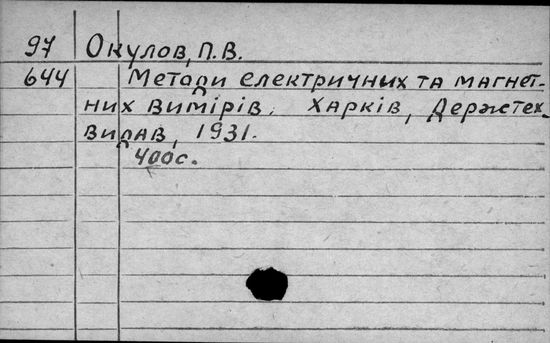 97 Окулов, П.В.
644 Методи електричних та магнет-
них вимірів. Харків, Держтех-
видав, 1931.
400с.